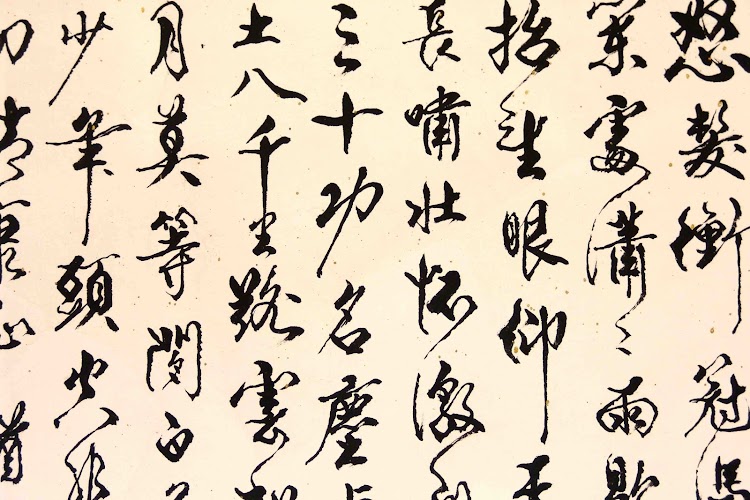 怒髮衝冠憑
欄處瀟〻雨歇
抬望眼仰天
長嘯壯懷激
三十功名塵與
土八千里路雲和
月莫等閒白
少年頭空悲
切靖康恥猶